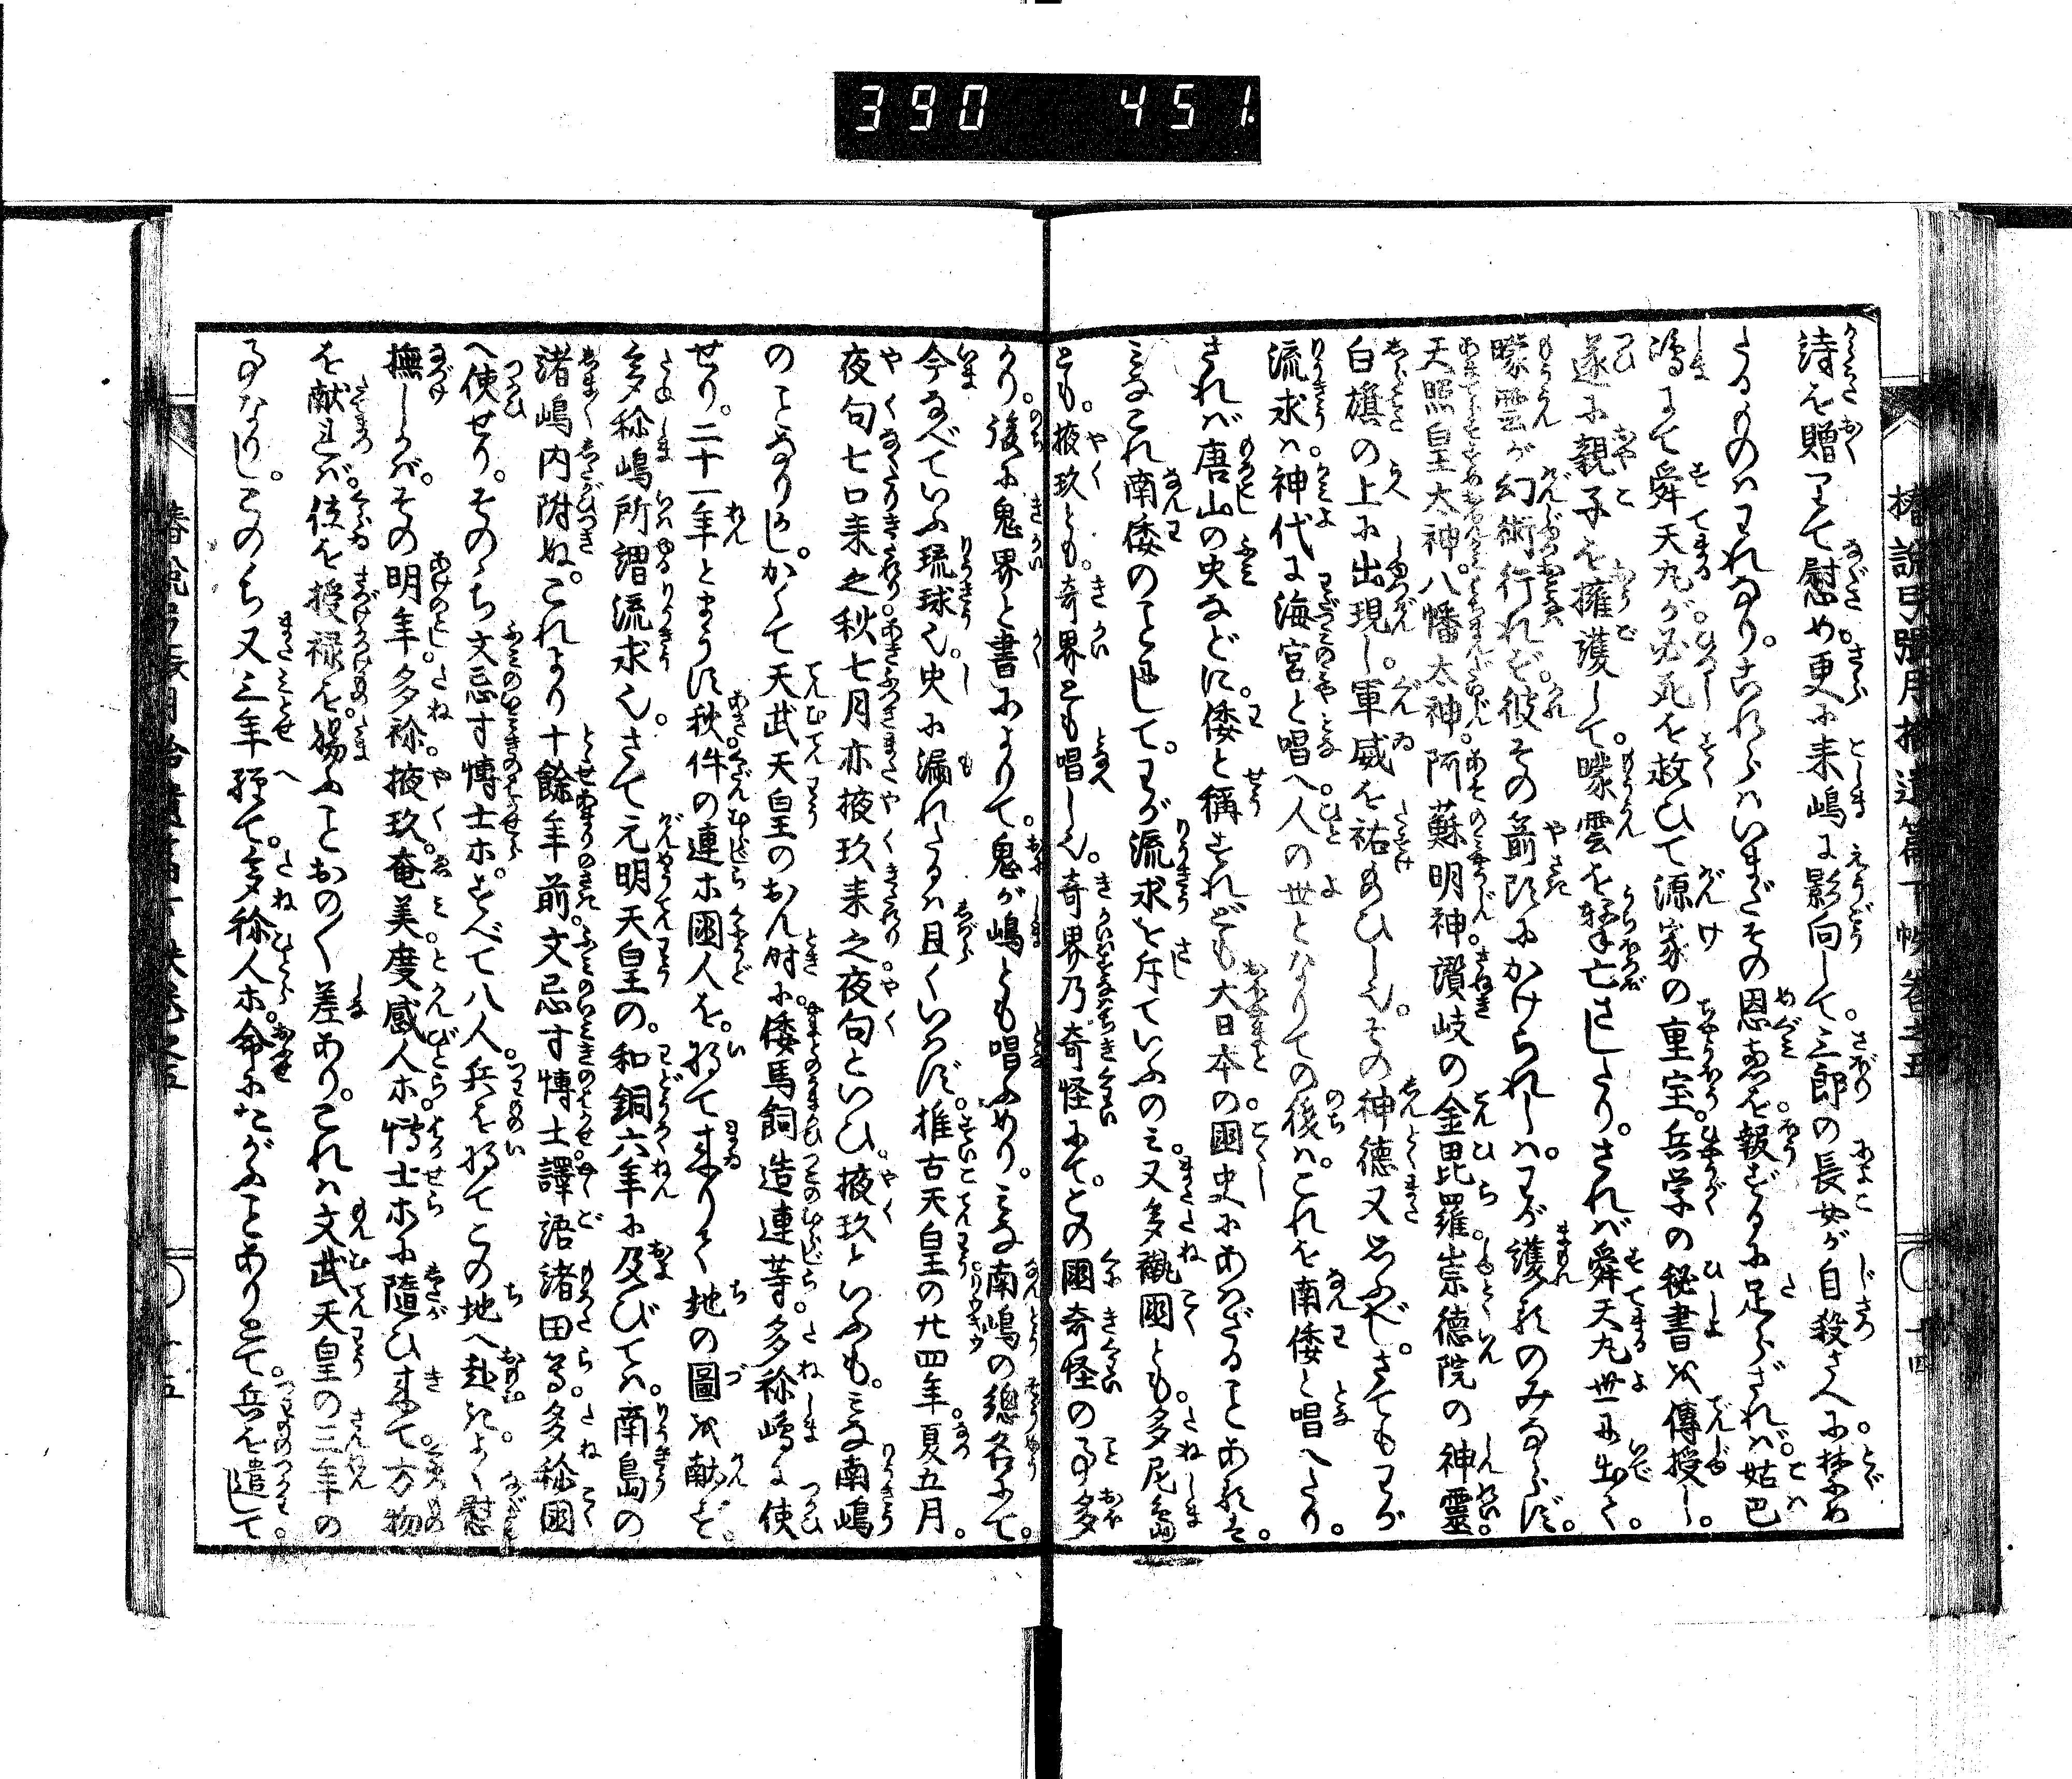 390 451.
椿說弓張月拾遺篇下帙卷之五
詩を贈りて慰め。更に来嶋に影向して。三郎の長女が自殺さへに禁め
たるものはわれなり。これらはいまだその恩惠を報ずるに足らざれば。姑巴
嶋にて舜天丸が。必死を救ひて源家の重宝。兵学の秘書を傳授し。
遂に親子を擁護して。曚雲を撃亡さしたり。されば舜天丸世に出て。
曚雲が幻術行れず。彼その箭頭にかけられしは。わが護るのみならず。
天照皇太神。八幡太神。阿蘇明神。讚岐の金毘羅。崇德院の神靈。
白旗の上に出現し。軍威を祐あひし也。その神德又思ふべし。さてもわが
流求は。神代に海宮と唱へ。人の世となりての後は。これを南倭と唱へたり。
されば唐山の史などに。倭と稱すれども大日本の國史にあはざることあるは。
みなこれ南倭のことにして。わが流求を斥ていふのみ。又多禰國とも。多尼島
とも。掖玖とも。奇界とも唱し也。奇界乃奇怪にて。この國奇怪の事多
かり。後に鬼界と書によりて。鬼が嶋とも唱ふめり。みな南嶋の總名にて。
今なべていふ琉球也。史に漏れたるは且くいはず。推古天皇の廿四年夏五月。
夜句七口来之秋七月亦掖玖来之夜句といひ。掖玖といふも。みな南嶋
のことなりけり。かくて天武天皇のおん時に。倭馬飼造連等。多祢嶋に使
せり。二十一年とまうす秋。件の連ホ國人を。将て来りて地の圖を献ず。
多祢嶋所謂流求也。さて元明天皇の。和銅六年に及びては。南島の
諸嶋内附ぬ。これより十餘年前。文忌寸博士。譯語諸田等。多祢國
へ使せり。そのゝち文忌寸博士ホ。すべて八人。兵を将てこの地へ赴きよく慰
撫しかば。その明年多祢。掖玖。奄美。度感人ホ。博士ホに隨ひ来て。方物
を献れば。位を授禄を。賜ふことおの〱差あり。これは文武天皇の三年の
事なりし。このゝち又三年歴て。多祢人ホ。命にたがふことありとて。兵を遣して